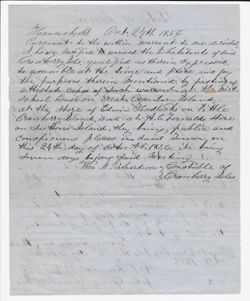 Hannahfold Oct. 24th 1856
Pursuant to the within warrant to me directed
I have notified & warned the Inhabitants of
Cranberry Isle, qualified as therein expressed,
to assemble at the time and place, and for
the purposes therein mentioned by posting
attested copys of such warrant at the
School house on Great Cranberry Island,
at the store of Edwin Hadlock on Little
Cranberry Island, and at H. G. Fernald's Store
on Suttons Island, they being public and
conspicuous places in said Town, on
this 24th day of October A.D. 1856, it being
seven days before said Meeting
Wm. M. Richardson Constable of
Cranberry Isles